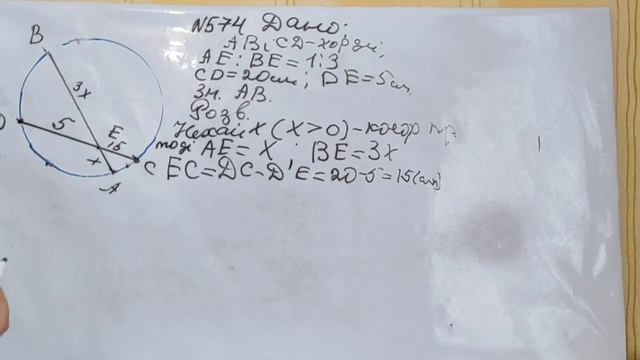 N574 Дано:
AB i CD-хорди;
AE:BE=1:3
CD=20см; DE=5см
Зн. AB.
Розв.
Нехай x (x>0)-коеф пр.
тоді AE=x; BE=3x
EC=DC-DE=20-5=15(см)
B
3x
D
5
E
15
x
C
A